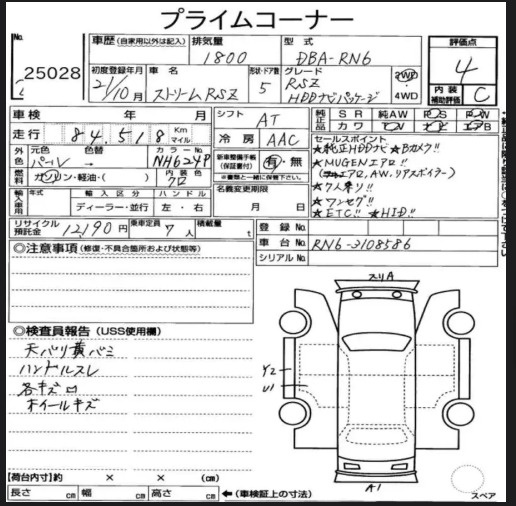 プライムコーナー
No.
25028
車歴 (自家用以外は記入)
排気量
1800
型式
DBA-RN6
評価点
4
初度登録年月
21/10月
車名
ストリームRSZ
形状・ドア数
5
グレード
RSZ
HDDナビパッケージ
2WD
4WD
内装
補助評価
C
車検 年 月
走行 84,518 Km
マイル
シフト
AT
冷房
AAC
純正品
SR 純AW PS PW
カワ TV ナビ エアB
外色
元色
パール
色替
→
カラーNo.
NH624P
燃料
ガソリン・軽油・( )
内装色
クロ
新車整備手帳
(保証書付)
有・無
※書類と一緒に保管下さい。
セールスポイント
★純正HDDナビ ★Bカメラ!!
★MUGENエアロ!!
エアロ, AW, リアスポイラー)
★7人乗り!!
★ワンセグ!!
★ETC!! ★HID!!
輸入車用
年式
輸入区分
ディーラー・並行
ハンドル
左・右
名義変更期限
月 日
リサイクル
預託金
12,190円
乗車定員
7人
積載量
t
登録No.
車台No.
RN6-3108586
シリアルNo.
◎注意事項 (修復・不具合箇所および状態等)
◎検査員報告 (USS使用欄)
天バリ黄バミ
ハンドルスレ
各キズ凹
ホイールキズ
スリA
Y2
U1
A1
スペア
【荷台内寸】約 × × (cm)
長さ cm 幅 cm 高さ cm ←(車検証上の寸法)